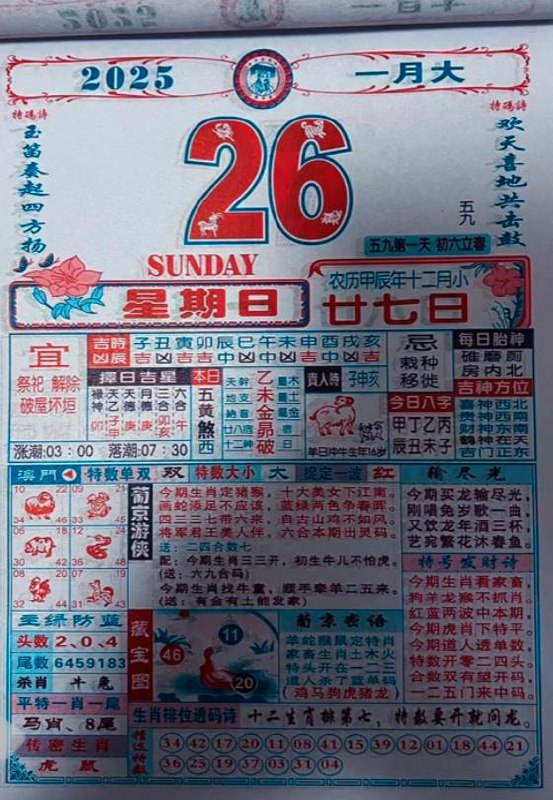 2025
一月大
特码诗
玉笛奏起四方扬
26
特码诗
欢天喜地共击鼓
五九
五九第一天 初六立春
SUNDAY
星期日
农历甲辰年十二月小
廿七日
宜
祭祀 解除
破屋坏垣
涨潮:03:00 落潮:07:30
吉時 子丑寅卯辰巳午未申酉戌亥
凶辰 吉凶吉吉中凶中凶中吉凶吉
择日吉星
禄神 天乙 天德 月德 三合 六合
本日
五黄煞西
天干 地支 纳音 廿八宿 十二神
乙未金昴破
贵人时 子申亥
单日中牛生年16岁
忌
栽种
移徙
每日胎神
碓磨厕
房内北
今日八字
甲丁乙丙
辰丑未子
吉神方位
喜神西北
贵神西南
财神东南
鹤神在天
吉门正东
澳門 特数单双 双 特数大小 大 捉定一波 红 输尽光
10 22
34 46
09 21
33 45
06 18
30 42
11 23
35 47
08 20
32 44
07 19
31 43
主绿防蓝
头数 2、0、4
尾数 6459183
杀肖 牛兔
平特一肖一尾
马肖、8尾
传密生肖
虎 鼠
葡京游侠
今期生肖定猪猴，十大美女下江南。
画蛇添足不应该，蓝绿两色争春晖。
四三三七带六来，自古山鸡不如风。
将军君王美人伴，六合本期出灵码。
送：二四合数七
配：今期生肖三三开，初生牛儿不怕虎。
(送：六九合码)
今期生肖找牛童，顺手牵羊二五来。
(送：有会有土能发家)
今期买龙输尽光，
刚唱兔岁歌一曲，
又饮龙年酒三杯，
艺宛繁花沐春鱼。
特号发财诗
今期生肖看家畜，
狗羊龙猴不抓肖。
红蓝两波中本期，
今期虎肖下特平。
今期道人透单数，
特数开零二四头。
合数双有望开码，
一二五门来中码。
藏宝图
11
46
20
葡京密语
羊蛇猴鼠定特肖
家畜生肖土木火
特头开在一二三
道人杀了蓝单码
(鸡马狗虎猪龙)
生肖排位透码诗 十二生肖排第七，特数要开就问龙。
精选特数
34 42 17 20 11 08 41 15 39 12 01 18 44 21
36 25 19 37 03 31 04